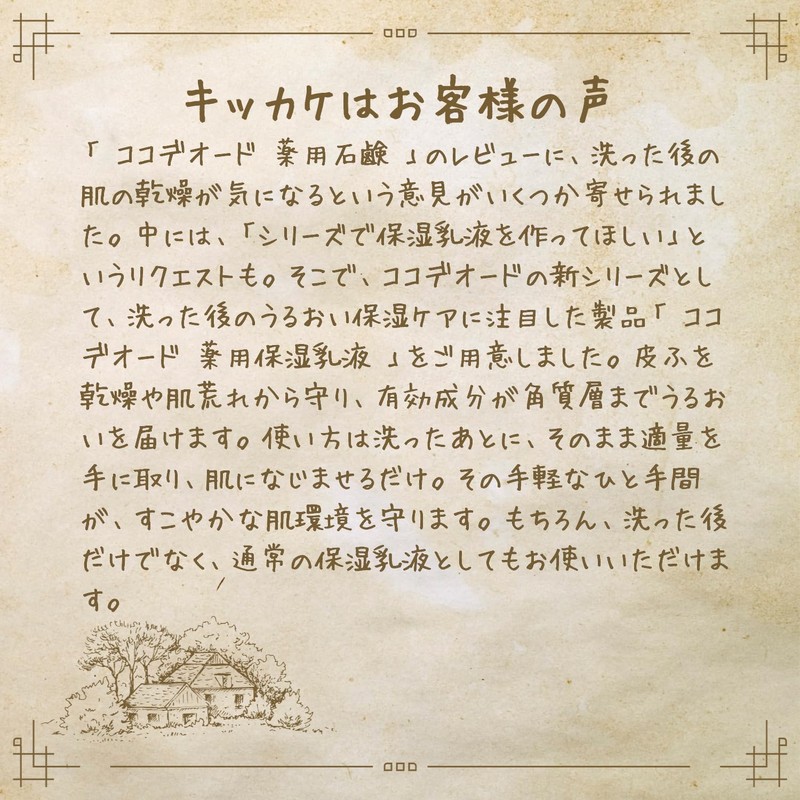 キッカケはお客様の声
「 ココデオード 薬用石鹸 」のレビューに、洗った後の
肌の乾燥が気になるという意見がいくつか寄せられまし
た。中には、「シリーズで保湿乳液を作ってほしい」と
いうリクエストも。そこで、ココデオードの新シリーズとし
て、洗った後のうるおい保湿ケアに注目した製品「 ココ
デオード 薬用保湿乳液 」をご用意しました。皮ふを
乾燥や肌荒れから守り、有効成分が角質層までうるお
いを届けます。使い方は洗ったあとに、そのまま適量を
手に取り、肌になじませるだけ。その手軽なひと手間
が、すこやかな肌環境を守ります。もちろん、洗った後
だけでなく、通常の保湿乳液としてもお使いいただけま
す。